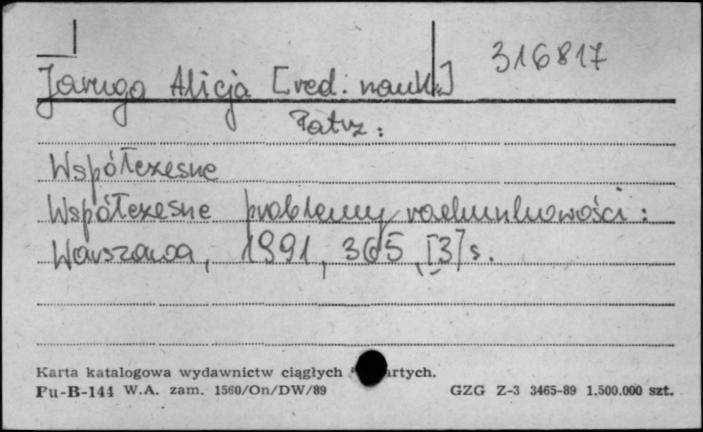 316817
Jaruga Alicja [red. nauk.]
Patrz:
Współczesne
Współczesne problemy rachunkowości:
Warszawa, 1991, 365, [3] s.
Karta katalogowa wydawnictw ciągłych artych.
Pu-B-144 W.A. zam. 1560/On/DW/89 GZG Z-3 3465-89 1.500.000 szt.